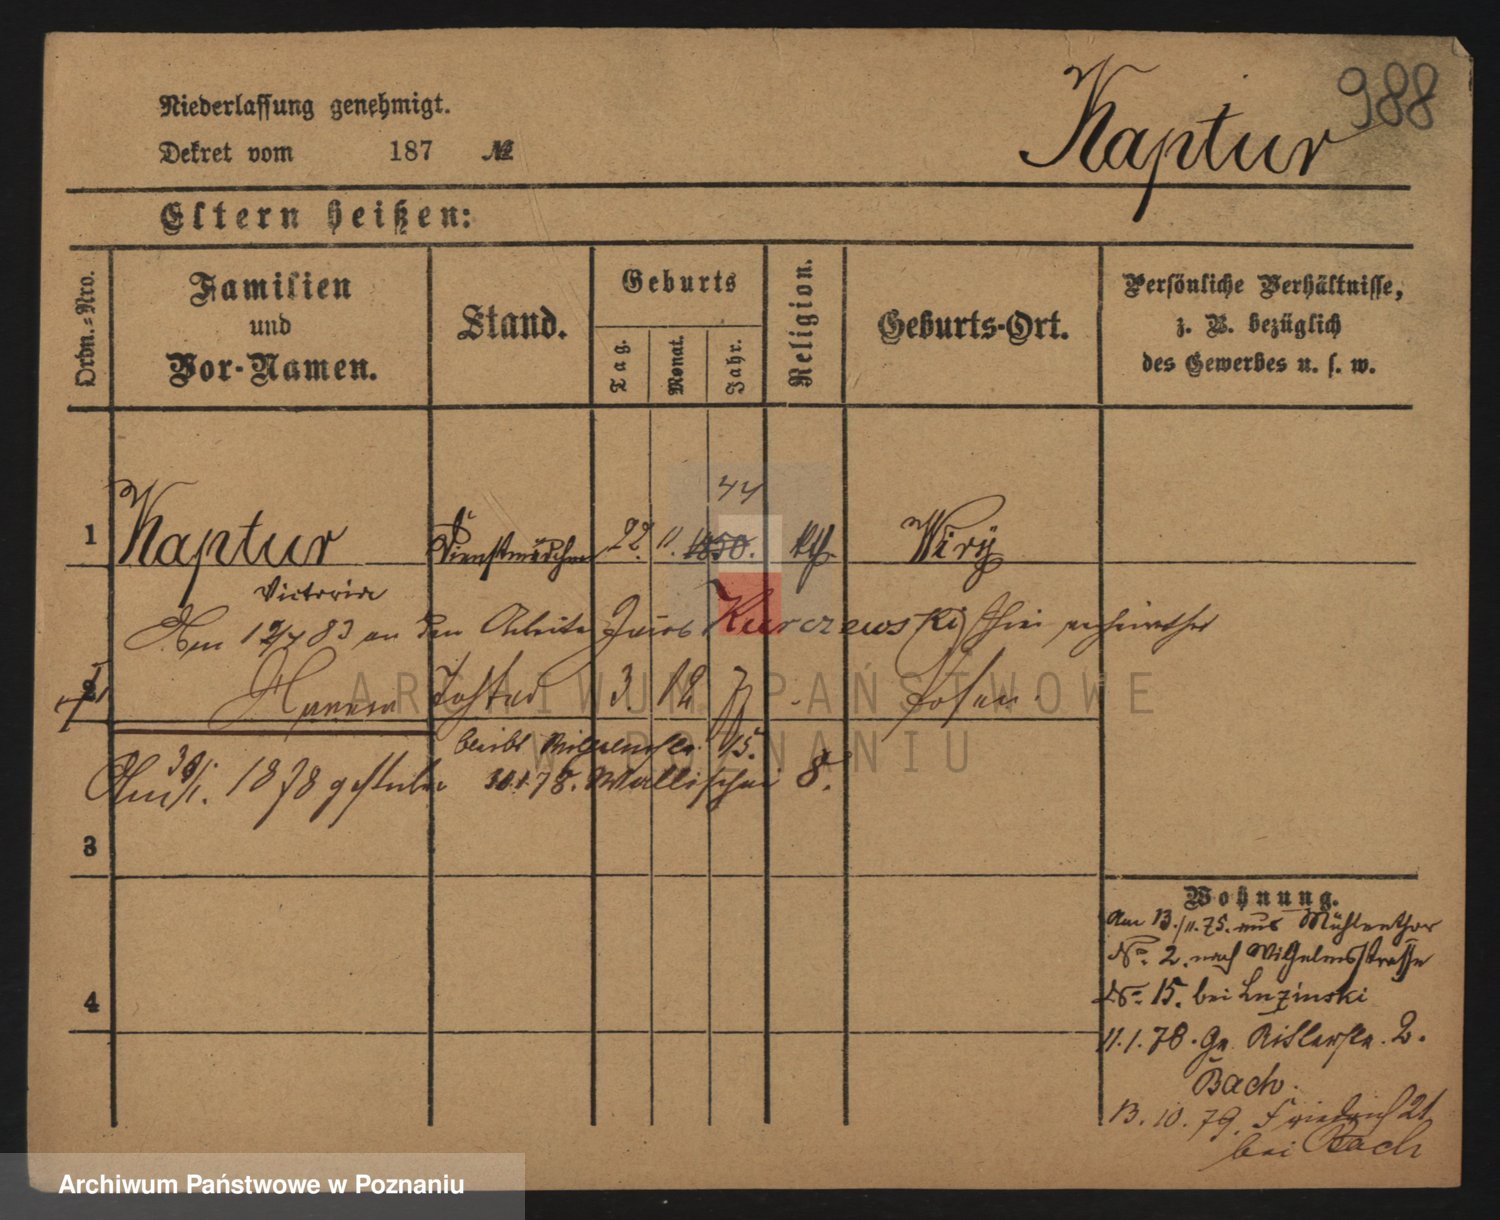 988
Kaptur
Niederlassung genehmigt.
Dekret vom 187 №
Eltern heißen:
Ordn.-Nro.
Familien
und
Vor-Namen.
Stand.
Geburts
Tag.
Monat.
Jahr.
Religion.
Geburts-Ort.
Persönliche Verhältnisse,
z. B. bezüglich
des Gewerbes u. s. w.
44
1 Kaptur Dienstmädchen 22. 11. 1850. kth Wiry
Victoria
Am 12/7 83 an den Arbeiter Jacob Kurczewski hier verheirathet
2 Hanna Tochter 3. 12 77 - Posen.
bleibt 15.
Am 30/1. 1878 gestorben 30.1.78. Wallischei 8.
3
4
Wohnung.
Am 13./11.75. aus Mühlenthor
No. 2. nach Wilhelmsstrasse
No. 15. bei Luzinski
11.1.78. Gr. Ritterstr. 2.
Bach.
13.10.79. Friedrich 21
bei Bach
ARCHIWUM PAŃSTWOWE
W POZNANIU
Archiwum Państwowe w Poznaniu